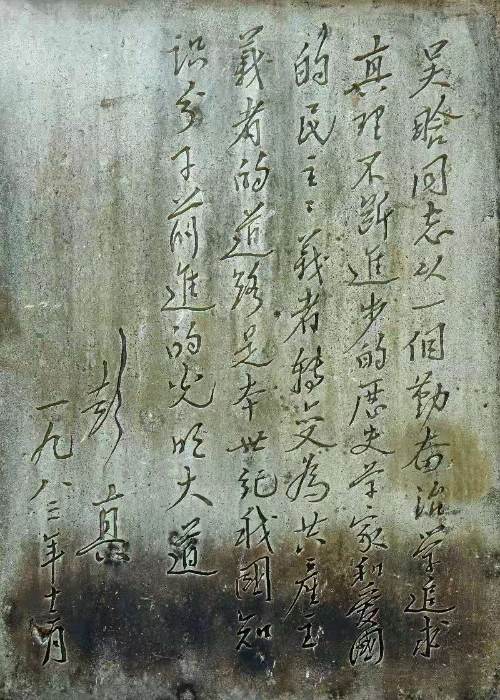 吴晗同志以一個勤奋治学追求
真理不断進步的历史学家和爱國
的民主主義者轉变為共産主
義者的道路是本世記我國知
识分子前進的光明大道
彭真
一九八三年十二月